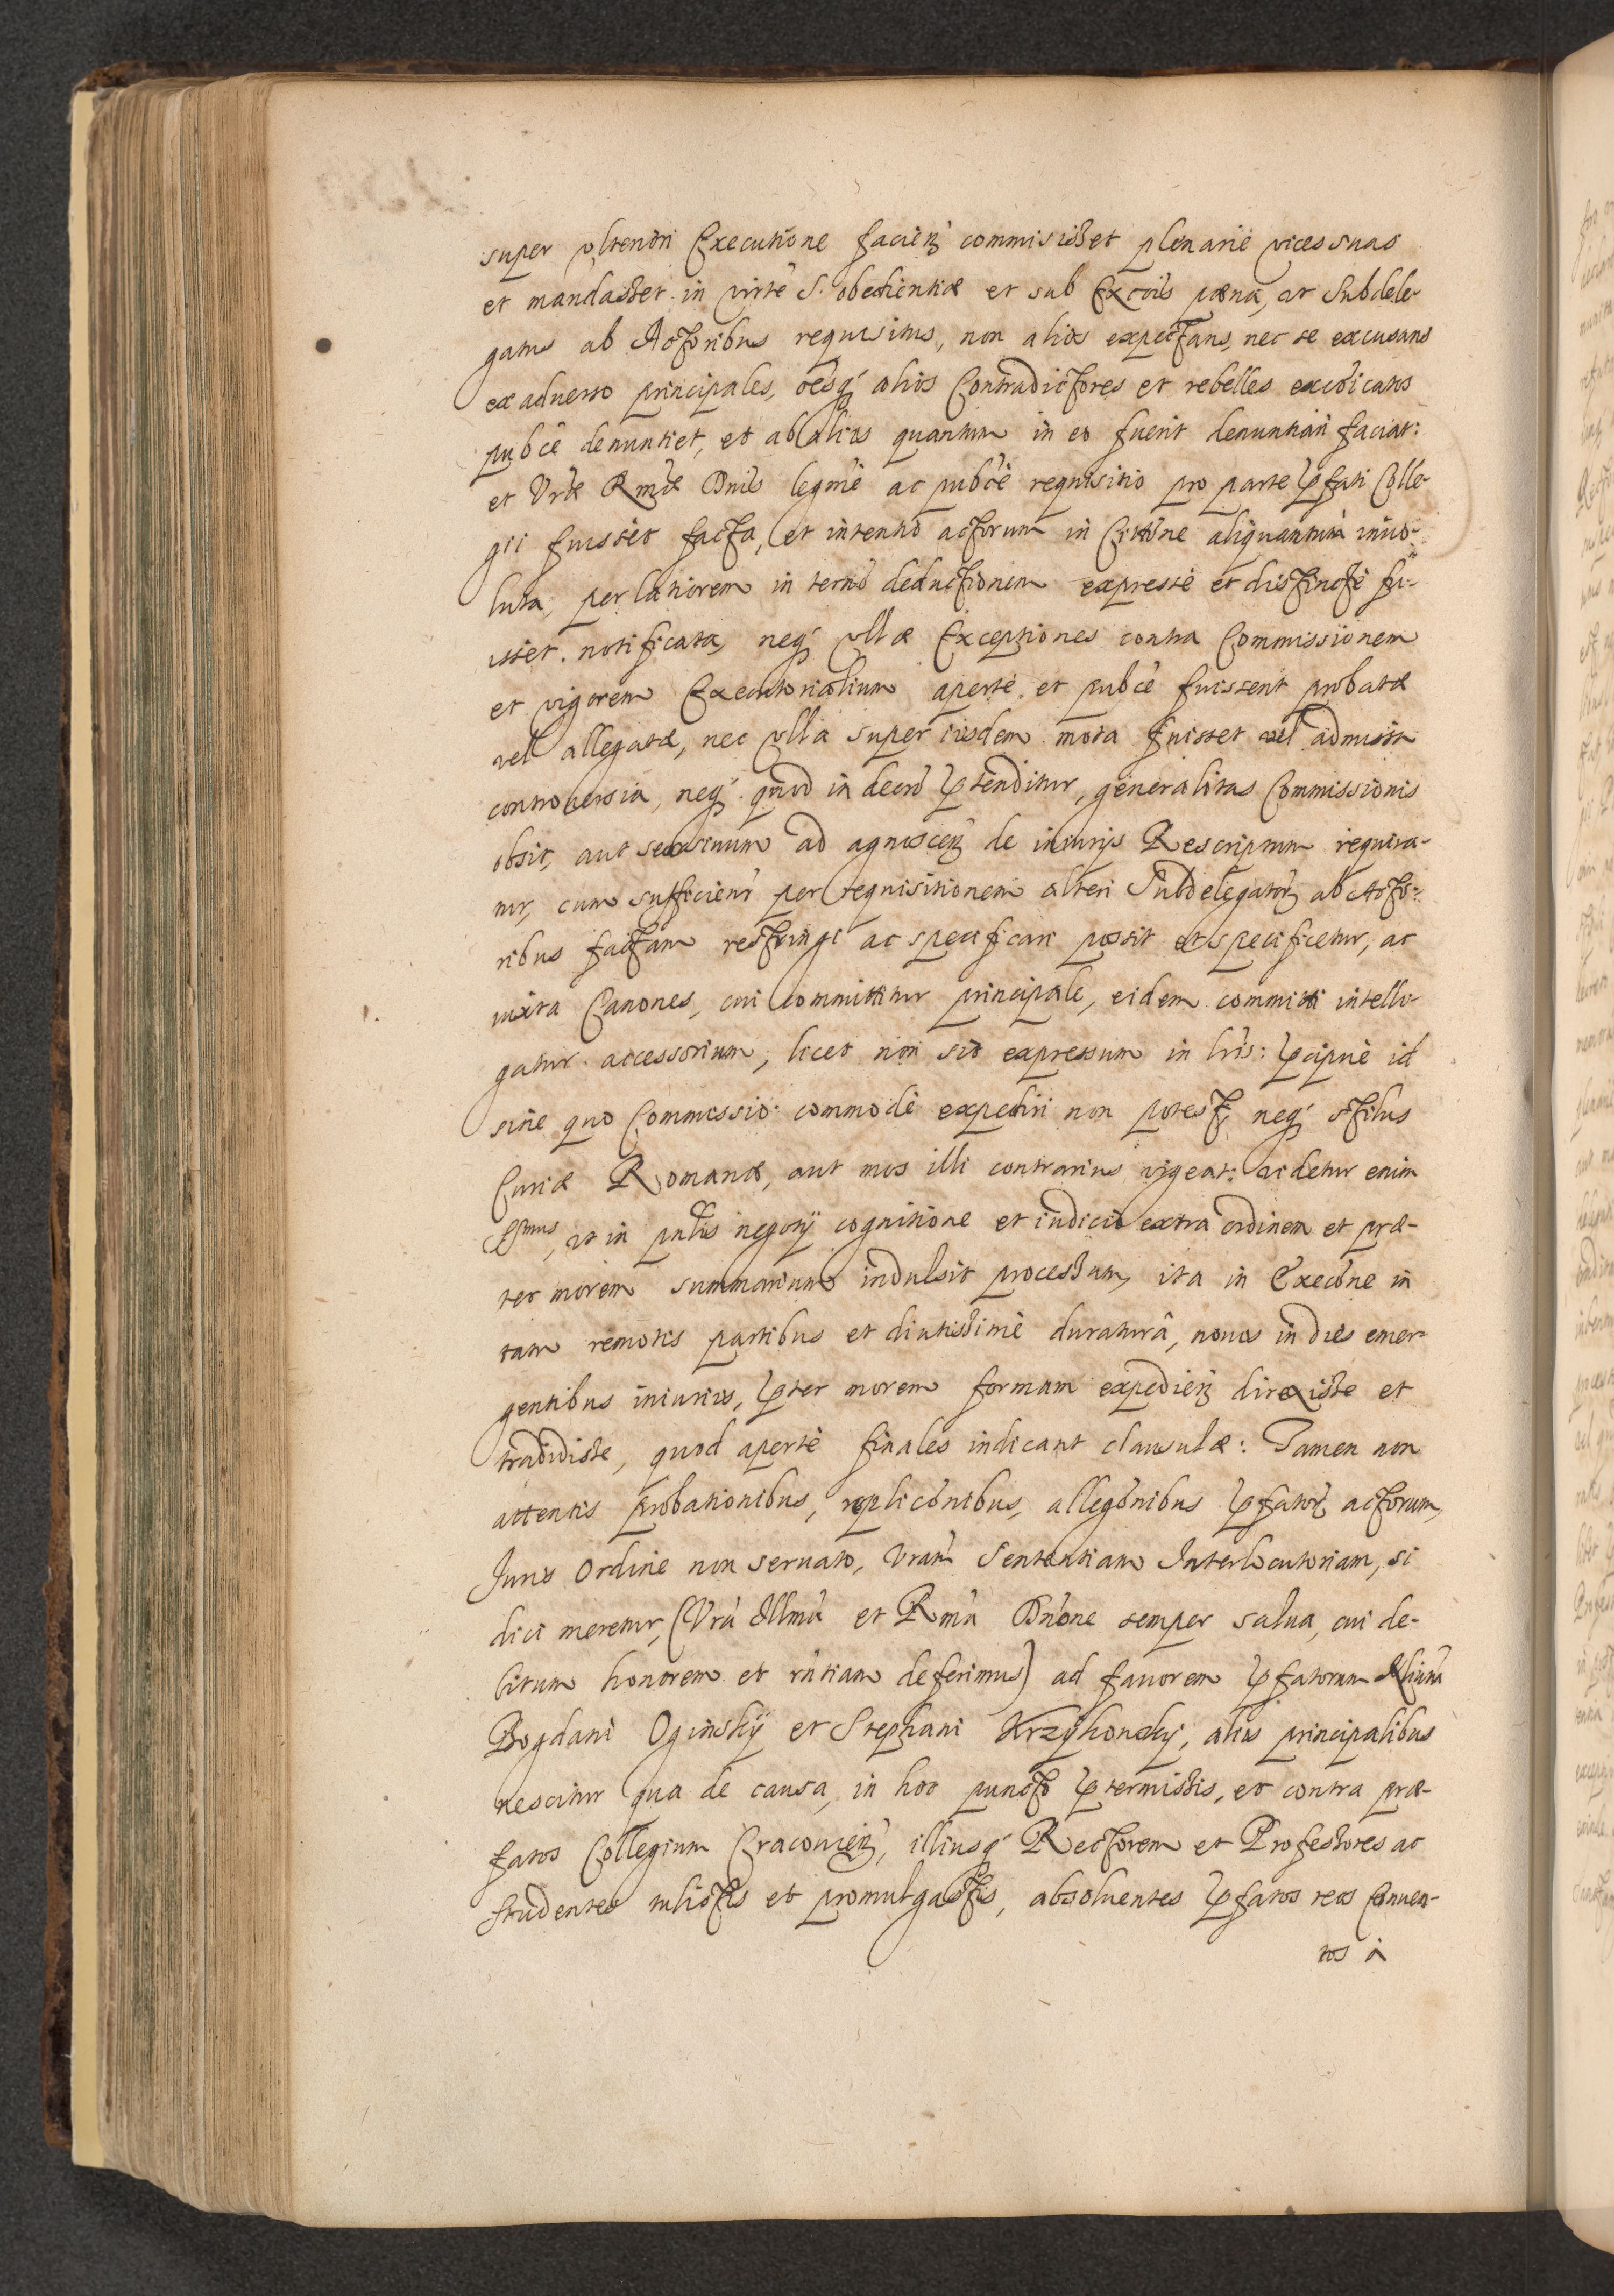 super ulteriori Executione facien commisisset plenarie vices suas
et mandasset in virte S. obedientiæ et sub Excois pœna, ut Subdele-
gatus ab Actoribus requisitus, non alios expectans, nec se excusans
ex aduerso principales, oesq́ alios Contradictores et rebelles excoicatos
pubce denuntiet, et ab alijs quantum in eo fuerit denuntiari faciat:
et Vræ Rmæ Dnis legme ac pubce requisitio pro parte pfati Colle-
gii fuisset facta, et intentio actorum in Cittone aliquantum inuo-
luta, per latiorem in termo deductionem expresse et distincte fu-
isset notificata, neq́ ullæ Exceptiones contra Commissionem
et vigorem Executorialium aperte et pubce fuissent probatæ
vel allegatæ, nec ulla super ijsdem mota fuisset vel admissa
controversia, neq́ quod in decro ptenditur, generalitas Commissionis
obsit, aut seorsiuum ad agnoscen de iniurijs Rescriptum requira-
tur, cum sufficienr per requisitionem alteri Subdelegator ab Acto-
ribus factam restringi ac specificari possit et specificetur, ac
iuxta Canones, cui committitur principale, eidem committi intelli-
gatur accessorium, licet non sit expressum in lris: pcipue id
sine quo Commissio commode expediri non potest, neq́ stilus
Curiæ Romanæ, aut mos illi contrarius vigeat: videtur enim
Ssmus, ut in pntis negotij cognitione et iudicio extra ordinem et præ-
ter morem summarium indulsit processum, ita in Execone in
tam remotis partibus et diutissime duraturâ, nouis in dies emer-
gentibus iniurijs, pter morem formam expedien direxisse et
tradidisse, quod aperte finales indicant clausulæ: Tamen non
attentis probationibus, repliconibus, allegonibus pfator actorum,
Juris Ordine non seruato, Vram Sententiam Interlocutoriam, si
dici meretur, (Vra Illma et Rma Dnone semper salua, cui de-
bitum honorem et rntiam deferimus) ad fauorem pfatorum
Bogdani Oginskÿ et Stephani Krzÿkonskÿ, alijs principalibus
nescitur qua de causa, in hoc puncto ptermissis, et contra præ-
fatos Collegium Cracouien, illiusq́ Rectorem et Professores ac
Studentes tulistis et promulgastis, absoluentes pfatos reos Conuen-
tos à